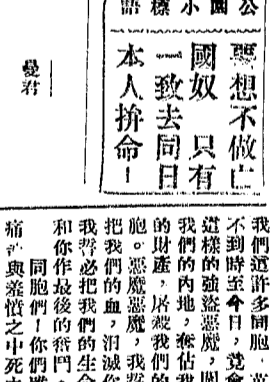 公園小標語
要想不做亡
國奴 只有
一致去同日
本人拚命!
曼君
我們這許多同胞,
不到時至今日,竟會
這樣的強盜惡魔,闖
我們的內地,奪佔我
的財產,屠殺我們的
胞。惡魔惡魔,我誓
把我們的血,汨滅你
我誓必把我們的生命
和你作最後的奮鬥。
同胞們!你們
痛心與羞憤之中死